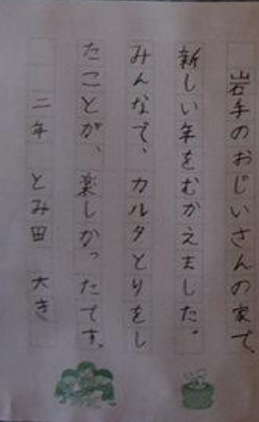 岩手のおじいさんの家で、
新しい年をむかえました。
みんなで、カルタとりをし
たことが、楽しかったです。
二年 とみ田 大き